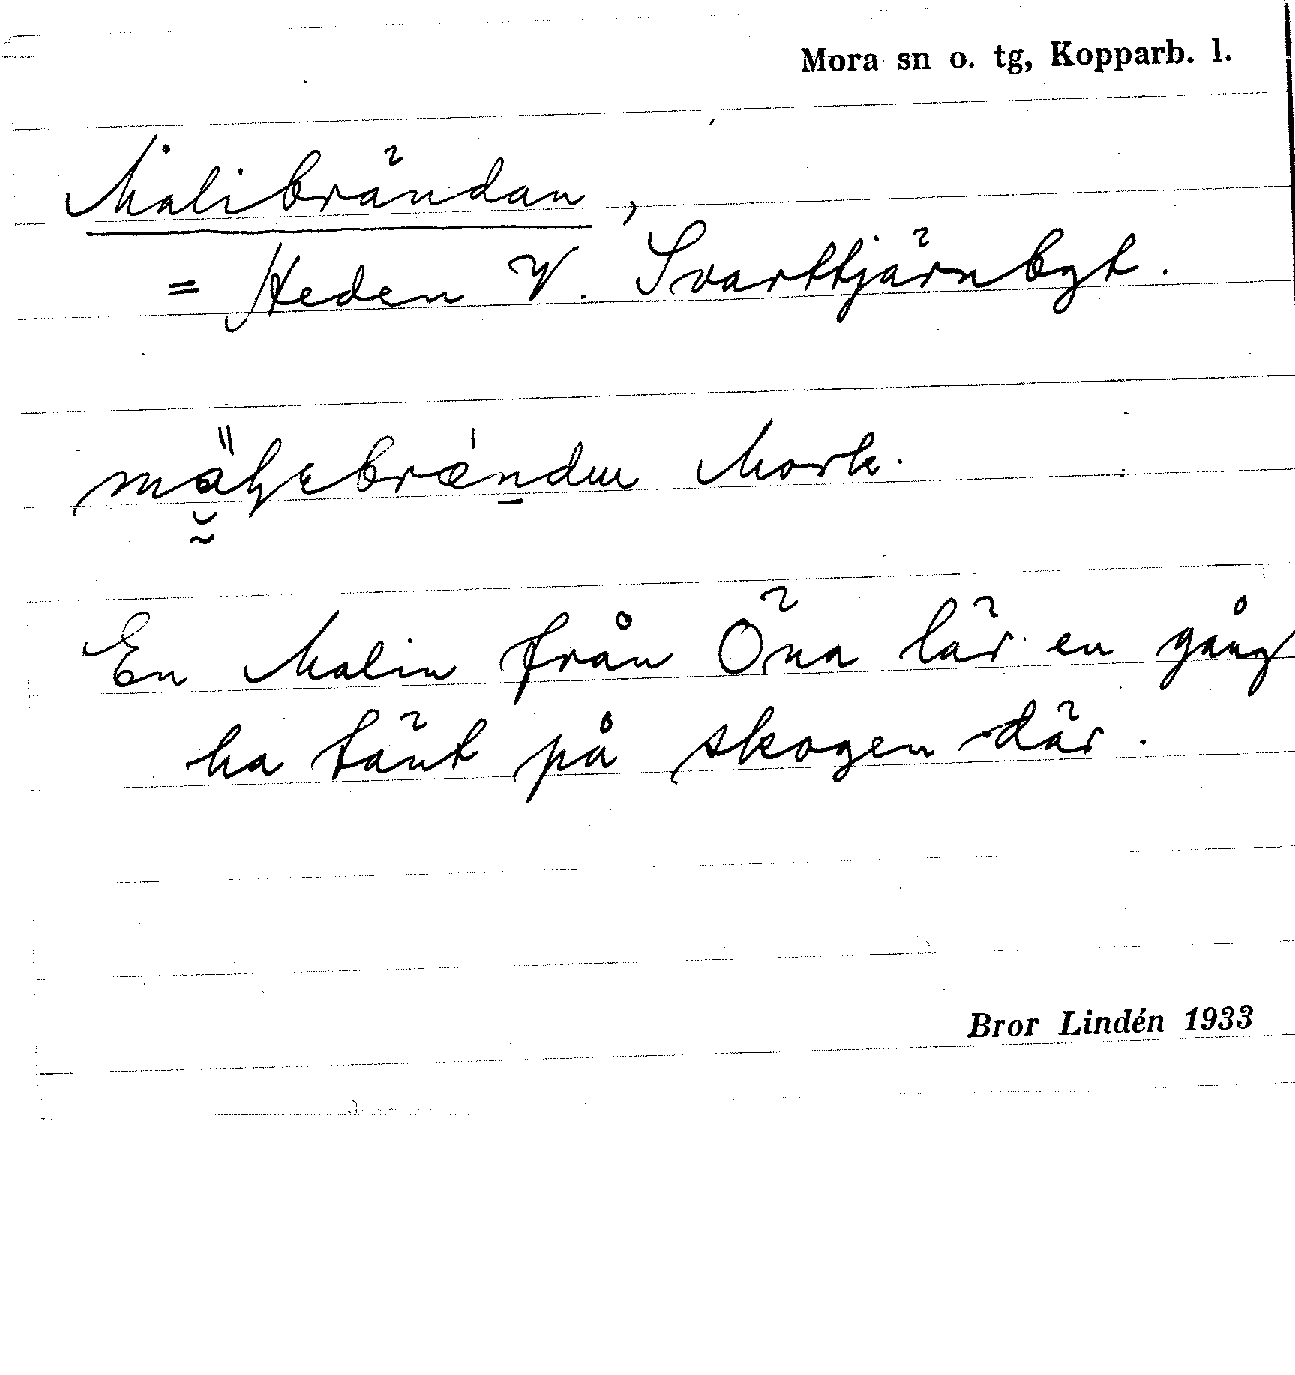 Mora sn o. tg, Kopparb. l.
Malibrändan,
= Heden V. Svarttjärnbgt.
Mork.
En Malin från Öna lär en gång
ha tänt på skogen där.
Bror Lindén 1933